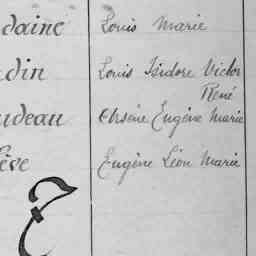 daine Louis Marie
din Louis Isidore Victor
René
udeau Arsène Eugène Marie
ève Eugène Léon Marie